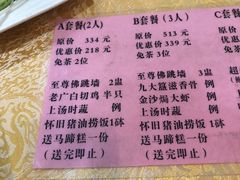 A套餐(2人)
原价 334 元
优惠价 218 元
免茶 2位
至尊佛跳墙 2盅
老广白切鸡 半只
上汤时蔬 例
怀旧猪油捞饭 1砵
送马蹄糕一份
(送完即止)
B套餐 (3人)
原价 513 元
优惠价 339 元
免茶 3位
至尊佛跳墙 3盅
九大簋滋香骨 例
金沙焗大虾 例
上汤时蔬 例
怀旧猪油捞饭1砵
送马蹄糕一份
(送完即止)
C套餐
原价
优惠
免茶
超
上
怀
送
(